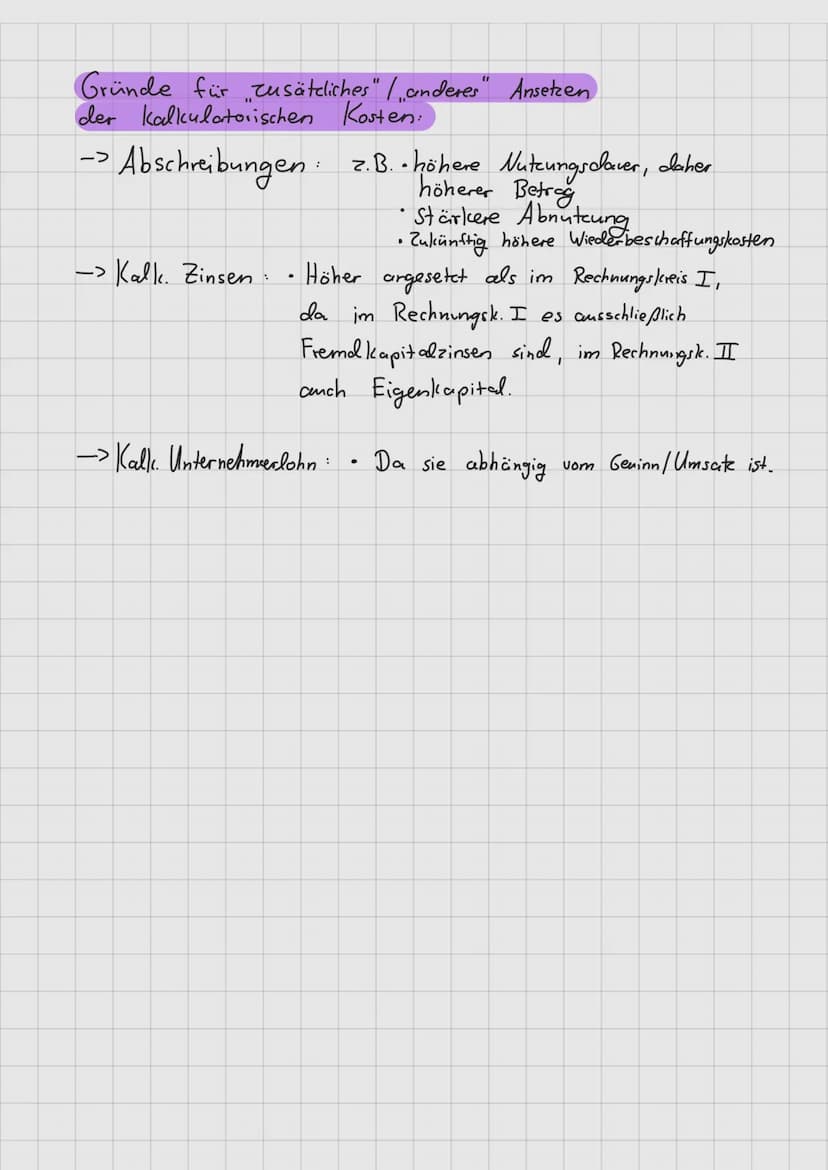 Gründe für "zusätzliches" / "anderes" Ansetzen
der kalkulatorischen Kosten:
-> Abschreibungen: z.B. • höhere Nutzungsdauer, daher
höherer Betrag
• Stärkere Abnutzung
• Zukünftig höhere Wiederbeschaffungskosten
-> Kalk. Zinsen: • Höher angesetzt als im Rechnungskreis I,
da im Rechnungsk. I es ausschließlich
Fremdkapitalzinsen sind, im Rechnungsk. II
auch Eigenkapital.
-> Kalk. Unternehmerlohn: • Da sie abhängig vom Gewinn/Umsatz ist.